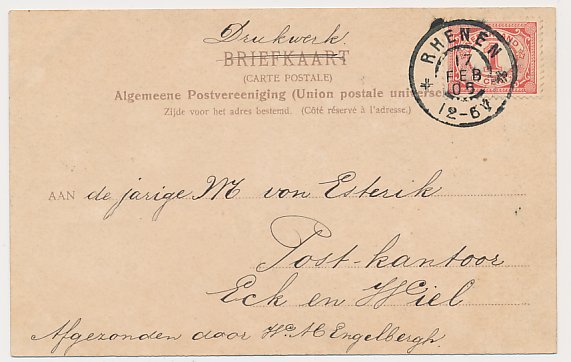 Drukwerk.
BRIEFKAART
(CARTE POSTALE)
Algemeene Postvereeniging (Union postale universelle)
Zijde voor het adres bestemd. (Côté réservé à l'adresse.)
RHENEN
17
FEB
05
12-6V
CENT
AAN de jarige M von Esterik
Post-kantoor
Eck en Wiel
Afgezonden door W. M Engelbergh.